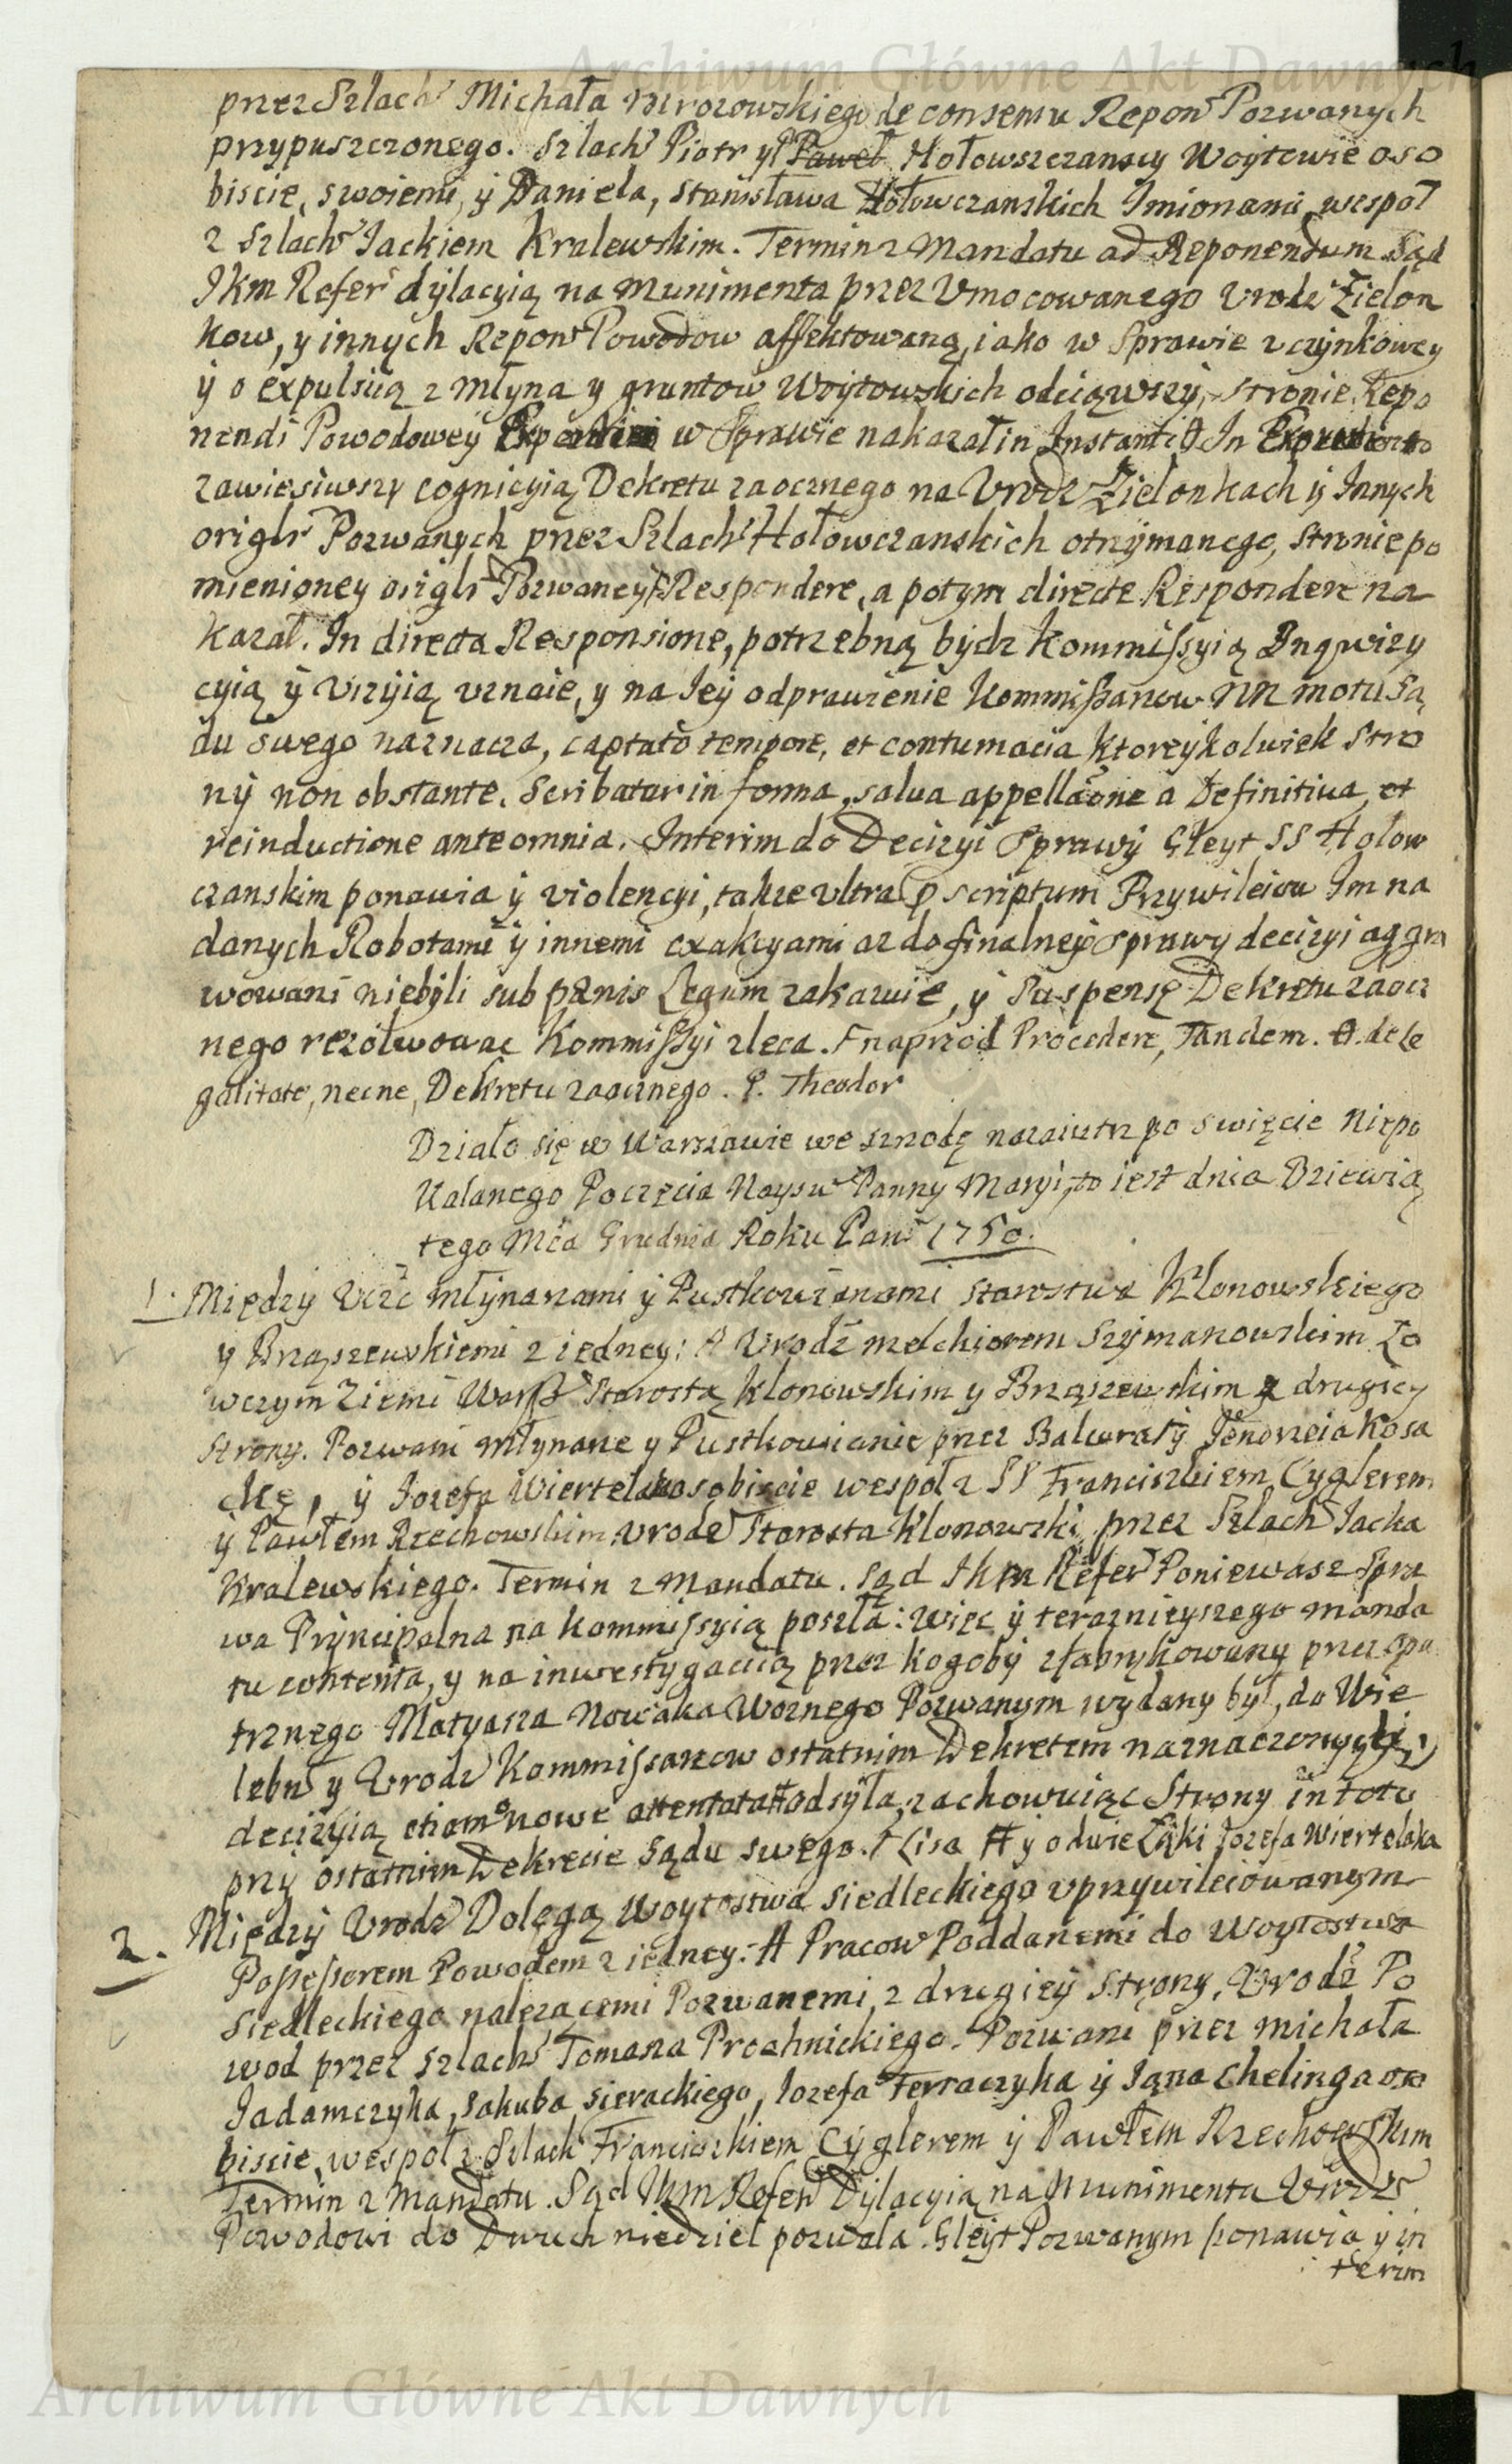 Archiwum Główne Akt Dawnych
przez Szlach Michała Mrozowskiego de consensu Repon Pozwanych
przypuszczonego. Szlach Piotr y Paweł Hołowszczanscy Woytowie oso
biscie, swoiemi, ÿ Daniela, Stanisława Hołowczanskich Imionami, wespoł
z Szlach Iackiem Kralewskim. Termin z Mandatu ad Reponendum. Sąd
Ikm Refer dylacyią na Munimenta przez Vmocowanego Vrodz Zielon
kow, y innych Repon Powodow affektowaną, iako w Sprawie vczynkowey
ÿ o expulsią z Młyna y gruntow Woytowskich odciąwszy, stronie Repo
nendi Powodowey w Sprawie nakazał in Instanti. In
zawiesiwszy cognicyią Dekretu zaocznego na Vrodz Zielonkach ÿ Innych
origlr Pozwanych przez Szlach Hołowczanskich otrzÿmanego, stronie po
mienioney origlr Pozwaney Respondere, a potym directe Respondere na
kazał. In directa Responsione, potrzebną bydz Kommissyią Inqwizy
cyią ÿ Vizyią vznaie, y na Iey odprawienie Kommissarzow NN motu Są
du swego naznacza, captato tempore, et contumacia ktoreykolwiek Stro
nÿ non obstante. Scribatur in forma, salva appellaõne a Definitiva, et
reinductione ante omnia. Interim do Decizyi Sprawÿ Gleyt SS Hołow
czanskim ponawia ÿ violencyi, takze vltra pscriptum Przywileiow Im na
danych Robotami ÿ innemi exakcyami az do finalneÿ Sprawy decizyi aggra
wowani niebÿli sub pænis Legum zakazuie, ÿ Suspensę Dekretu zaocz
nego rezolwowac Kommissyi zleca. F naprzod Procedere, Tandem. # de le
galitate, necne, Dekretu zaocznego. P. Theodor
Działo się w Warszawie we szrodę nazaiutrz po swięcie Niepo
kalanego Poczęcia Naysw Panny Maryi, to iest dnia Dziewią
tego Mca Grudnia Roku Pan 1750.
1. Międzÿ Vczc Młynarzami ÿ Pustkowianami Starostwa Klonowskiego
y Brząszewskiemi z iedney: A Vrodz Melchiorem Szÿmanowskim Ło
wczym Ziemi Warss Starostą Klonowskim y Brząszewskim z drugiey
strony. Pozwani Młynarze y Pustkowianie przez Jędrzeia Kosa
ckę, ÿ Iozefa Wiertelaka osobiscie wespoł z SS Franciszkiem Cyglerem
ÿ Pawłem Rzechowskim, Vrodz Starosta Klonowski, przez Szlach Iacka
Kralewskiego. Termin z Mandatu. Sąd Ikm Refer Poniewasz Spra
wa Pryncipalna na Kommissyią poszła: więc ÿ teraznieyszego manda
tu contenta, y na inwestÿgacią przez kogobÿ zfabrykowany przez opa
trznego Matyasza Nowaka Woznego Pozwanym wydany był, do Wie
lebn y Vrodz Kommissarzow ostatnim Dekretem naznaczonych
decizyią etiam nowe attentata # odsÿła, zachowuiąc Strony in toto
przy ostatnim Dekrecie Sądu swego. # y o dwie Łąki Iozefa Wiertelaka
2. Międzÿ Vrodz Dolęgą Woytostwa Siedleckiego vprzywileiowanym
Possessorem Powodem z iedney: A Pracow Poddanemi do Woytostwa
Siedleckiego nalezącemi Pozwanemi, z drugieÿ Strony, Vrodz Po
wod przez Szlach Tomasza Prochnickiego. Pozwani przez Michała
Iadamczyka, Iakuba Sierackiego, Iozefa Ferraczyka ÿ Iana Chelinga oso
biscie, wespoł z Szlach Franciszkiem Cÿglerem ÿ Pawłem Rzechowskim
Termin z Mandatu. Sąd Ikm Refer Dÿlacyią na Munimenta Vrodz
Powodowi do Dwuch niedziel pozwala. Gleyt Pozwanym ponawia y in
terim
Archiwum Główne Akt Dawnych